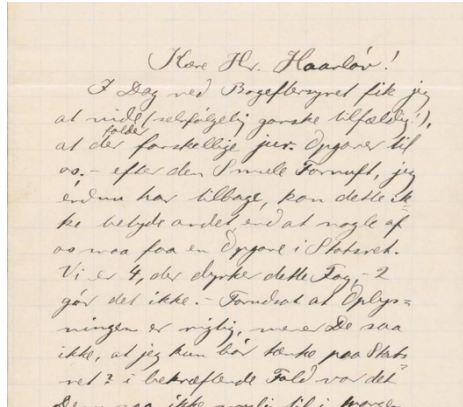 Kære Hr. Haarløv!
I Dag ved Bogeftersynet fik jeg
at vide (selvfølgelig ganske tilfældig!),
at der falder forskellige jur. Opgaver til
os. - efter den Smule Fornuft, jeg
endnu har tilbage, kan dette ik-
ke betyde andet, end at nogle af
os maa faa en Opgave i Statsret.
Vi er 4, der dyrker dette Fag, - 2
gør det ikke. - Forudsat at Oplys=
ningen er rigtig, mener De saa
ikke, at jeg kun bør tænke paa Stats
ret? i bekræftende Fald var det
Dem maa ikke muligt til i